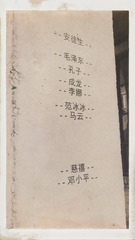 --安徒生--
--毛泽东--
--孔子--
--成龙--
--李娜--
--范冰冰--
--马云--
--慈禧--
--邓小平--